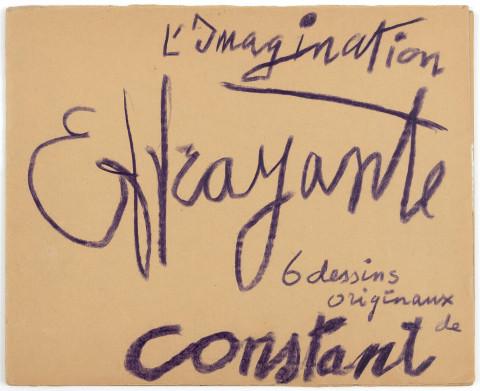 L'Imagination
Effrayante
6 dessins
originaux
de
constant